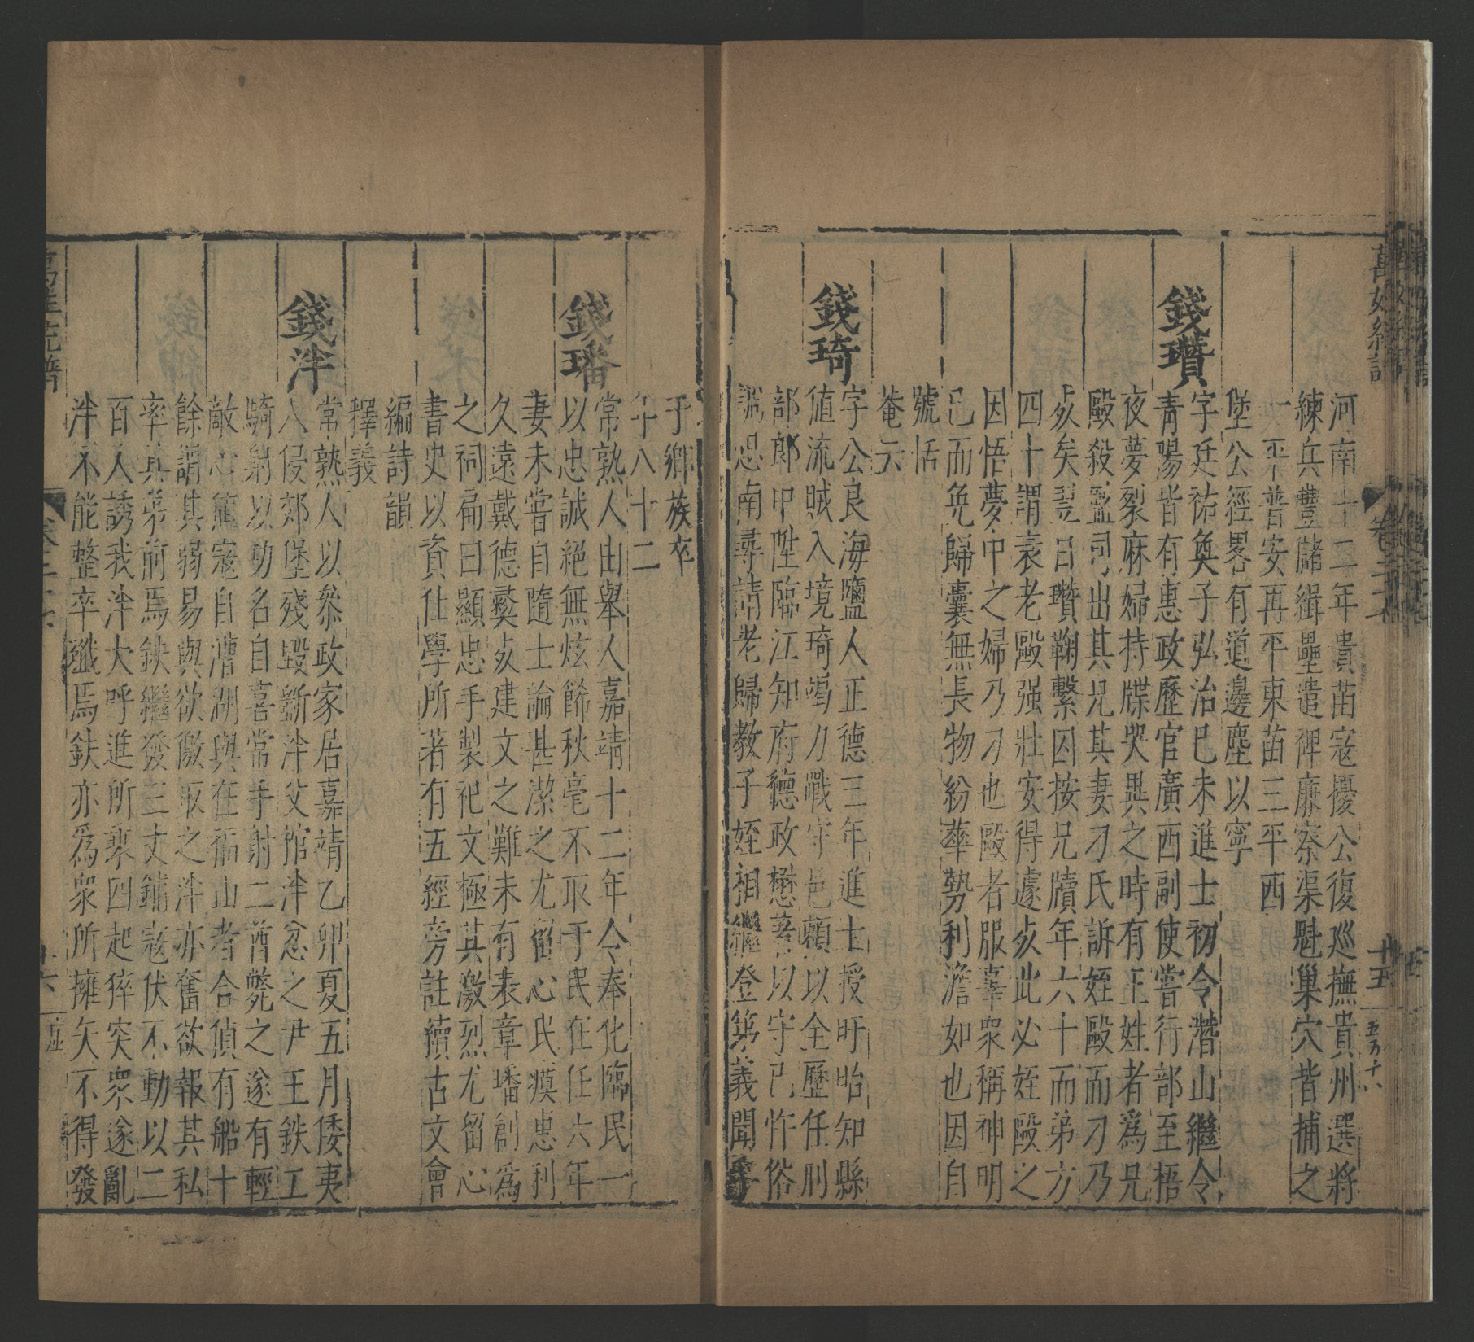 萬姓統譜 卷二十七 十五 五万十八
河南十二年貴苗寇擾公復巡撫貴州選將
練兵豐儲緝壘遣禆廉察渠魁巢穴皆捕之
一平普安再平東苗三平西
堡公經畧有道邊塵以寧
錢瓚 字廷祐奐子弘治己未進士初令潛山繼令
青陽皆有惠政歷官廣西副使嘗行部至梧
夜夢裂麻婦持牒哭異之時有王姓者為兄
毆殺盬司出其兄其妻刁氏訴姪毆而刁乃
妭矣翌日瓚鞠繫囚按兄牘年六十而弟方
四十謂袁老毆强壯安得遽妭此必姪毆之
因悟夢中之婦乃刁也毆者服辜衆稱神明
已而免歸囊無長物紛華勢利澹如也因自
號恬
菴云
錢琦 字公良海鹽人正德三年進士授盱眙知縣
值流賊入境琦竭力戰守邑賴以全歷任刑
部郎中陞臨江知府德政懋著以守己忤俗
誣忠南尋請老歸教子姪相繼登第義聞孚
于鄉族卒
年八十二
錢璠 常熟人由舉人嘉靖十二年令奉化臨民一
以忠誠絕無炫餙秋毫不取于民在任六年
妻未嘗自隨士論甚潔之尤留心民瘼惠利
久遠戴德戣妭建文之難未有表章璠創為
之祠扁曰顯忠手製祀文極其激烈尤留心
書史以資仕學所著有五經旁註續古文會
編詩韻
釋義
錢泮 常熟人以叅政家居嘉靖乙卯夏五月倭夷
入侵郊堡殘毀斵泮父棺泮忿之尹王鈇工
騎射以勳名自喜常手射二酋斃之遂有輕
敵心薦寇自漕湖與在福山者合偵有船十
餘謂其弱易與欲儌取之泮亦奮欲報其私
率其弟前焉鈇繼發三丈鋪寇伏不動以二
百人誘我泮大呼進所乘四起猝突衆遂亂
泮不能整卒殲焉鈇亦為衆所擁矢不得發
萬姓統譜 卷二十七 十六